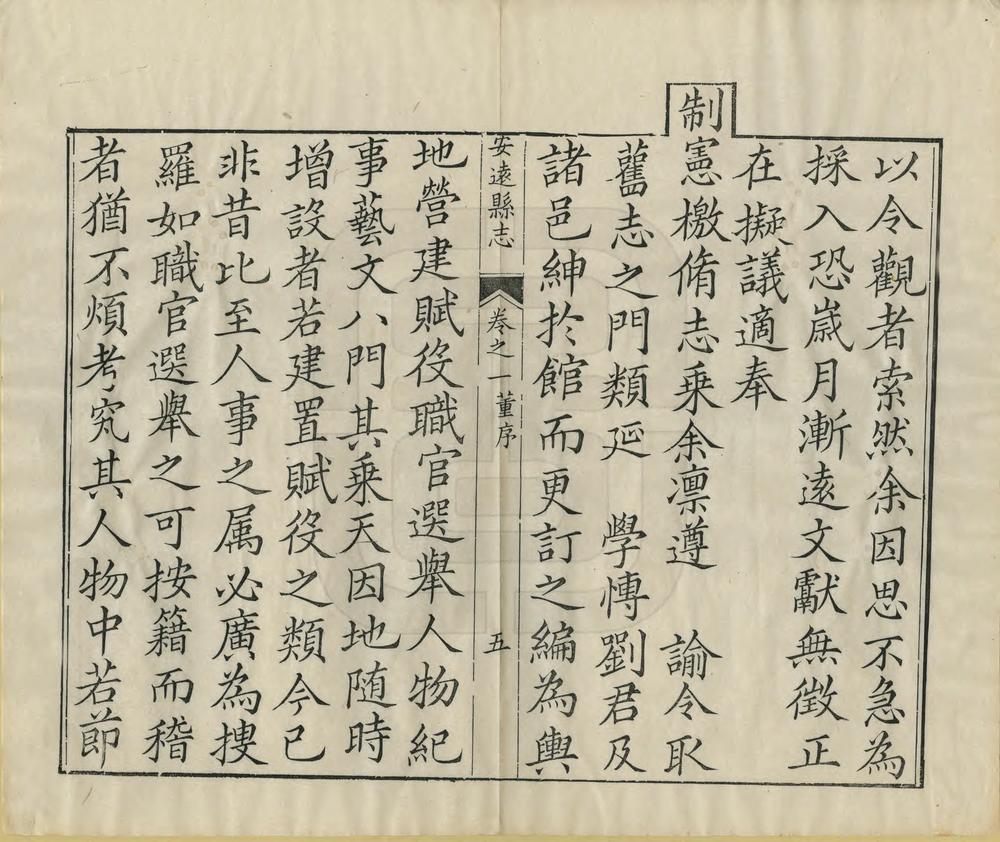 以令觀者索然余因思不急為
採入恐嵗月漸逺文獻無徴正
在擬議適奉
制憲檄脩志乗余凛遵 諭令取
舊志之門類延 學博劉君及
諸邑紳扵館而更訂之編為輿
安逺縣志 卷之一 董序 五
地營建賦役職官選舉人物紀
事藝文八門其乗天因地随時
增設者若建置賦役之類今已
非昔比至人事之属必廣為搜
羅如職官選舉之可按籍而稽
者猶不煩考究其人物中若節